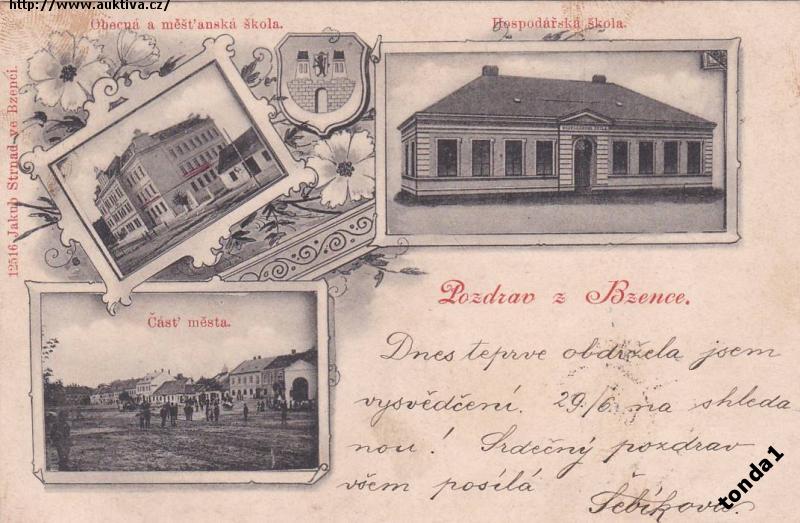 http://www.auktiva.cz/
Obecná a měšťanská škola.
Hospodářská škola.
12516 Jakub Strnad ve Bzenci.
Pozdrav z Bzence.
Část' města.
Dnes teprve obdržela jsem
vysvědčení. 29/6. na shleda
nou! Srdečný pozdrav
všem posílá
Šebíková.
tonda1